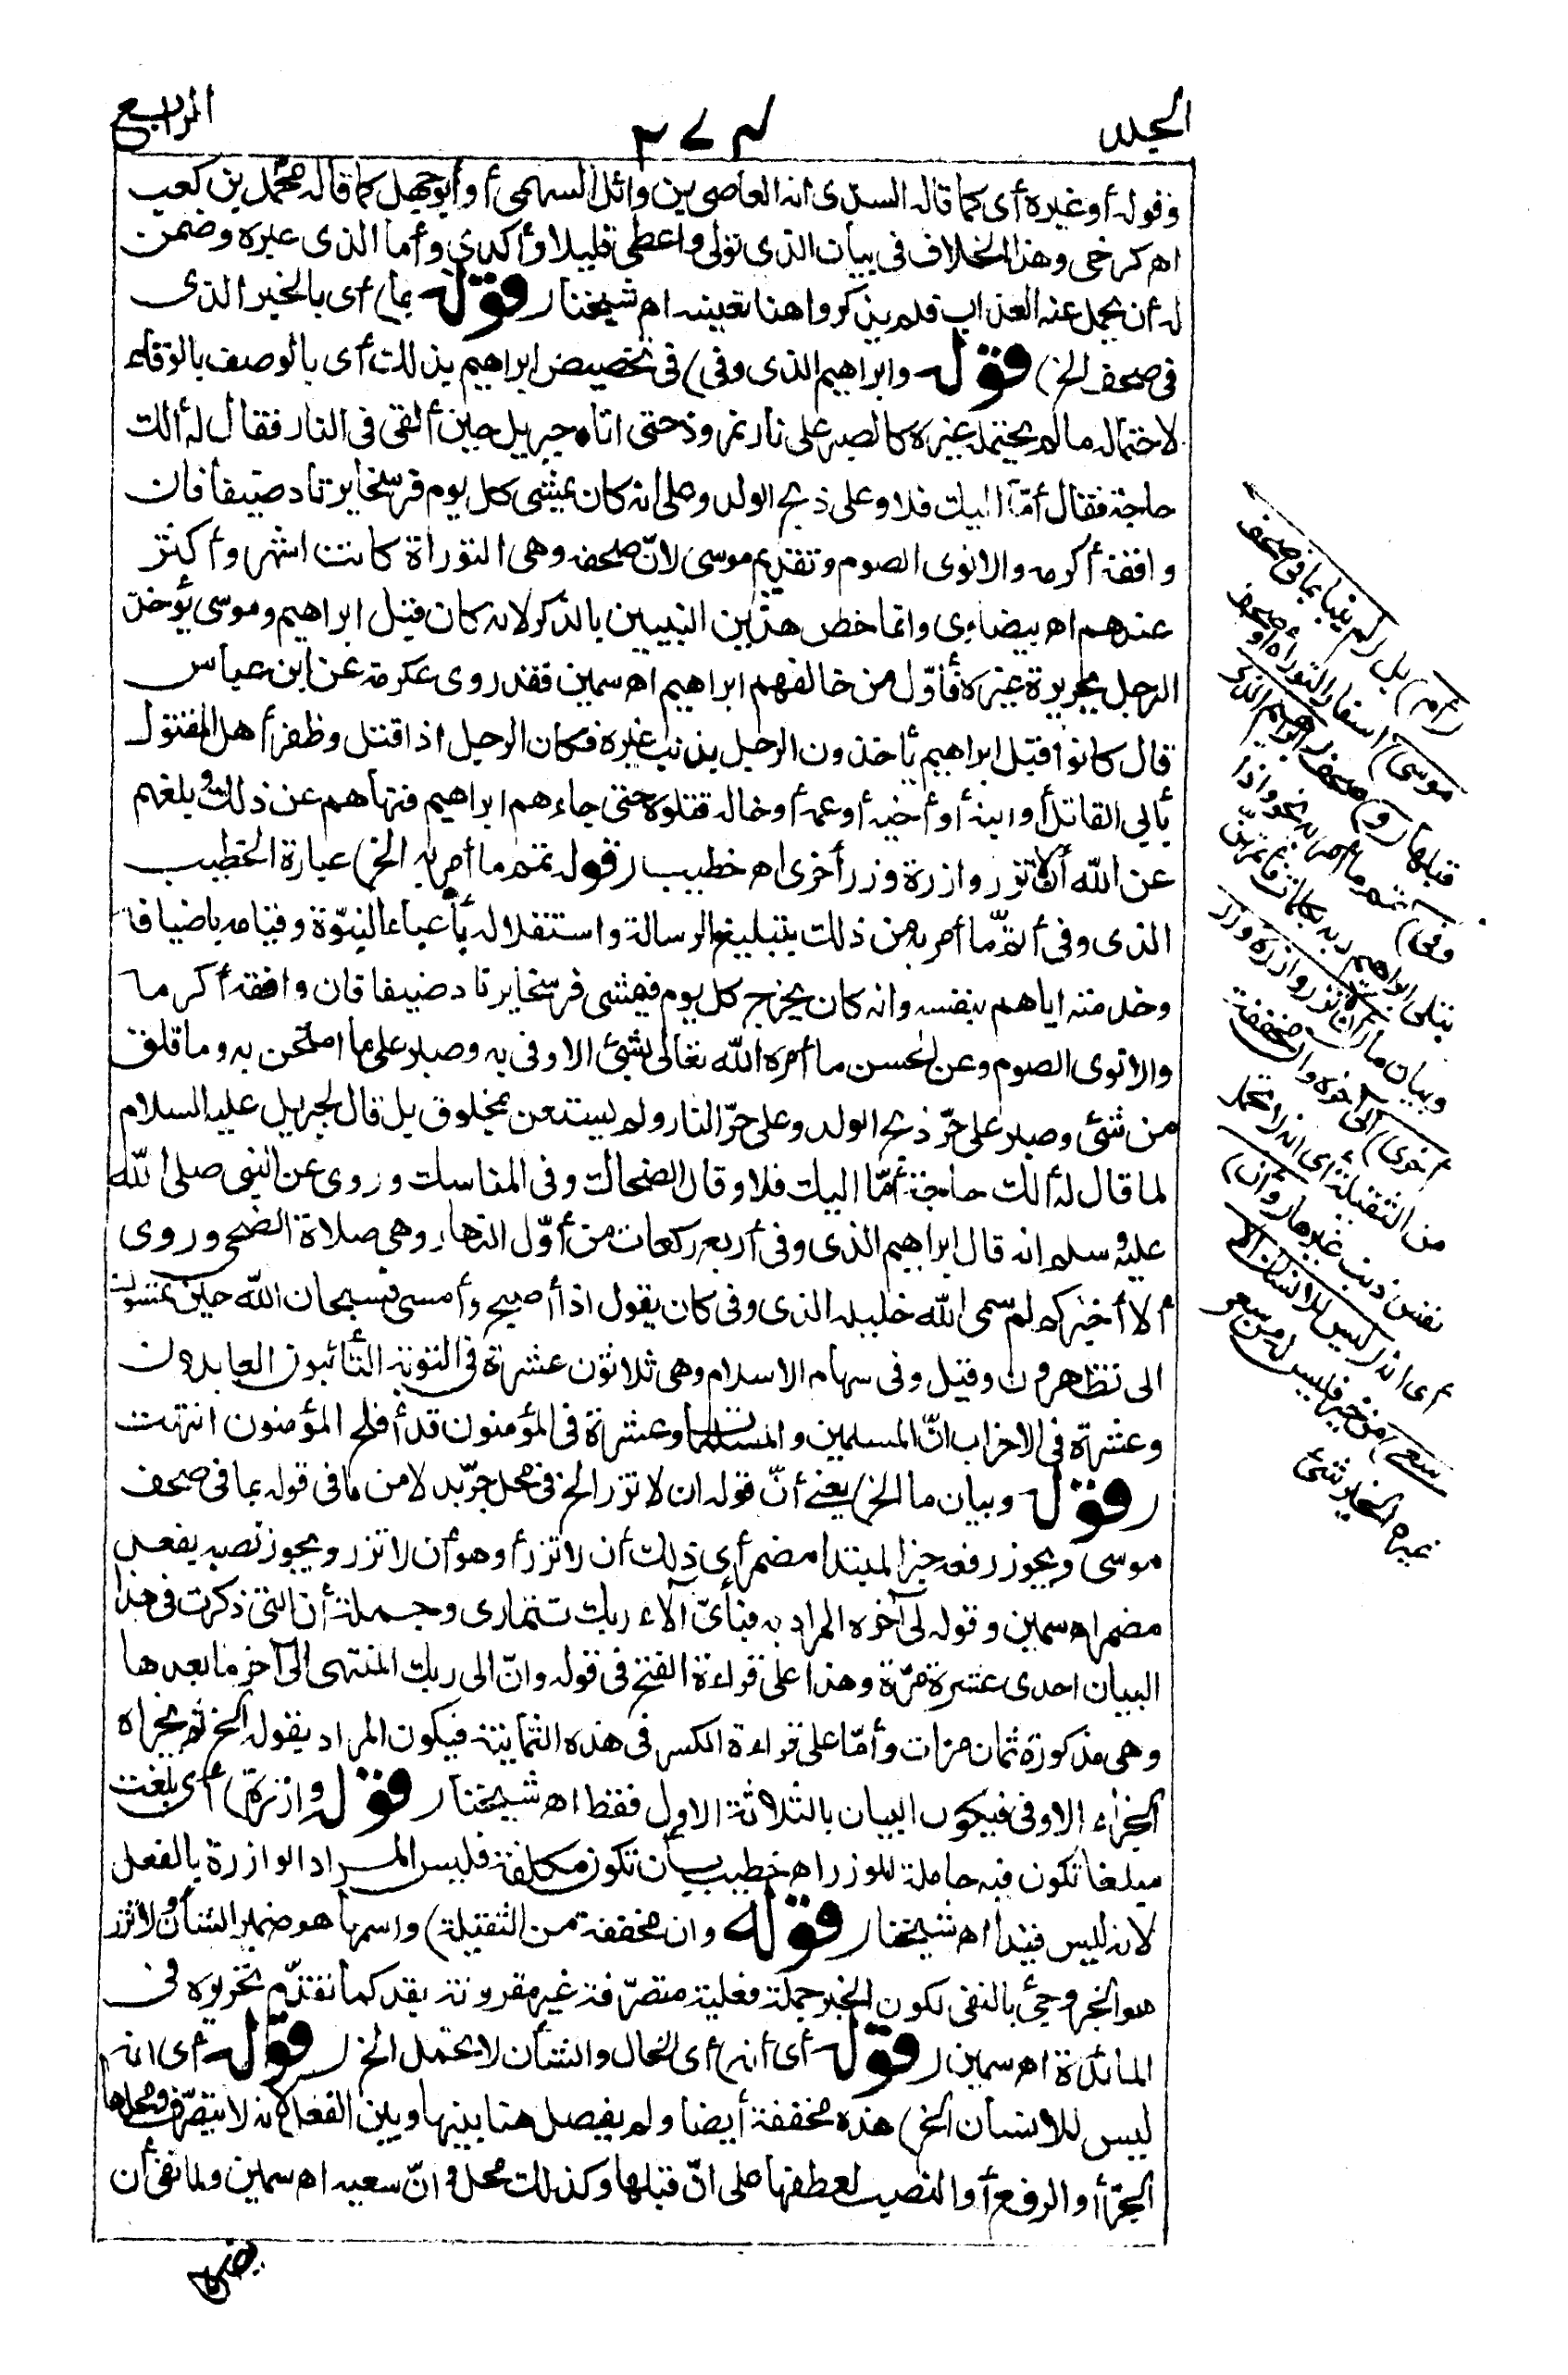 الجلد
٢٧٤
الرابع
وقوله أو غيره أى كما قاله السدّى انه العاصى بن وائل السهمى أو أبو جهل كما قاله محمد بن كعب
اه كرخى وهذا الخلاف فى بيان الذى تولى واعطى قليلا وأكدى وأما الذى عيره وضمن
له أن يحمل عنه العذاب فلم يذكروا هنا تعيينه اه شيخنا (قوله بما) أى بالخبر الذى
فى صحف الخ) قوله وابراهيم الذى وفى) فى تخصيص ابراهيم بذلك أى بالوصف بالوفاء
لاحتماله مالم يحتمله غيره كالصبر على نار نمروذ حتى اتاه جبريل حين ألقى فى النار فقال له ألك
حاجة فقال أمّا اليك فلا وعلى ذبح الولد وعلى انه كان يمشى كل يوم فرسخا يرتاد ضيفا فان
وافقه أكرمه والا نوى الصوم وتقديم موسى لانّ صحفه وهى التوراة كانت اشهر وأكثر
عندهم اه بيضاوى وانما خص هذين النبيين بالذكر لانه كان قبل ابراهيم وموسى يؤخذ
الرجل بجريرة غيره فأوّل من خالفهم ابراهيم اه سمين فقد روى عكرمة عن ابن عباس
قال كانوا قبل ابراهيم يأخذون الرجل بذنب غيره فكان الرجل اذا قتل وظفر أهل المقتول
بأبى القاتل أو ابنه أو أخيه أو عمه أو خاله قتلوه حتى جاءهم ابراهيم فنهاهم عن ذلك وبلغهم
عن الله أن لا تزر وازرة وزر أخرى اه خطيب (قوله تمم ما أمر به الخ) عبارة الخطيب
الذى وفى أتمّ ما أمر به من ذلك بتبليغ الرسالة واستقلاله بأعباء النبوّة وقيامه باضيافه
وخدمته اياهم بنفسه وانه كان يخرج كل يوم فيمشى فرسخا يرتاد ضيفا فان وافقه أكرمه
والا نوى الصوم وعن الحسن ما أمره الله تعالى بشئ الا وفى به وصبر على ما امتحن به وما قلق
من شئ وصبر على حرّ ذبح الولد وعلى حرّ النار ولم يستعن بمخلوق بل قال لجبريل عليه السلام
لما قال له ألك حاجة أمّا اليك فلا وقال الضحاك وفى المناسك وروى عن النبى صلى الله
عليه وسلم انه قال ابراهيم الذى وفى أربع ركعات من أوّل النهار وهى صلاة الضحى وروى
ألا أخبركم لم سمى الله خليله الذى وفى كان يقول اذا أصبح وأمسى فسبحان الله حين تمسون
الى تظهرون وقيل وفى سهام الاسلام وهى ثلاثون عشرة فى التوبة التائبون العابدون
وعشرة فى الاحزاب انّ المسلمين والمسلمات وعشرة فى المؤمنون قد أفلح المؤمنون انتهت
(قوله وبيان ما الخ) يعنى أنّ قوله ان لا تزر الخ فى محل جرّ بدلا من ما فى قوله بما فى صحف
موسى ويجوز رفعه خبرا لمبتدا مضمر أى ذلك أن لا تزر أو هو أن لا تزر ويجوز نصبه بفعل
مضمر اه سمين وقوله الى آخره المراد به فبأىّ آلاء ربك تتمارى وجملة أن التى ذكرت فى هذا
البيان احدى عشرة مرّة وهذا على قراءة الفتح فى قوله وانّ الى ربك المنتهى الى آخر ما بعدها
وهى مذكورة ثمان مرات وأمّا على قراءة الكسر فى هذه الثمانية فيكون المراد بقوله الخ ثم يجزاه
الجزاء الاوفى فيكون البيان بالثلاثة الاول فقط اه شيخنا (قوله وازرة) أى بلغت
مبلغا تكون فيه حاملة للوزر اه خطيب بأن تكون مكلفة فليس المراد الوازرة بالفعل
لانه ليس قيدا اه شيخنا (قوله وان مخففة من الثقيلة) واسمها هو ضمير الشأن ولا تزر
هو الخبر وجئ بالنفى لكون الخبر جملة فعلية متصرّفة غير مقرونة بقد كما تقدّم تحريره فى
المائدة اه سمين (قوله أى أنه) أى الحال والشأن لا تحمل الخ (قوله أى انه
ليس للانسان الخ) هذه مخففة أيضا ولم يفصل هنا بينها وبين الفعل لانه لا يتصرّف ومحلها
الجرّ أو الرفع أو النصب لعطفها على انّ قبلها وكذلك محل وانّ سعيه اه سمين ولما نفى أن
(أم) بل (لم ينبأ بما فى صحف
موسى) اسفار التوراة أو صحف
قبلها (و) صحف (ابراهيم الذى
وفى) تمم ما أمر به نحو واذا
ابتلى ابراهيم ربه بكلمات فأتمهنّ
وبيان ما (أن لا تزر وازرة وزر
أخرى) الى آخره وأن مخففة
من الثقيلة أى انه لا تحمل
نفس ذنب غيرها (وأن)
أى انه (ليس للانسان الا ما
سعى) من خير فليس له من سعى
غيره الخير شئ